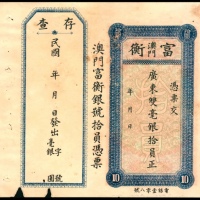 富衡
澳門
憑票交
廣東雙毫銀拾員正
年 月 日
10 10
澳門富衡銀號拾員憑票
存查
民國 年 月 日發出毫銀 字
號 員